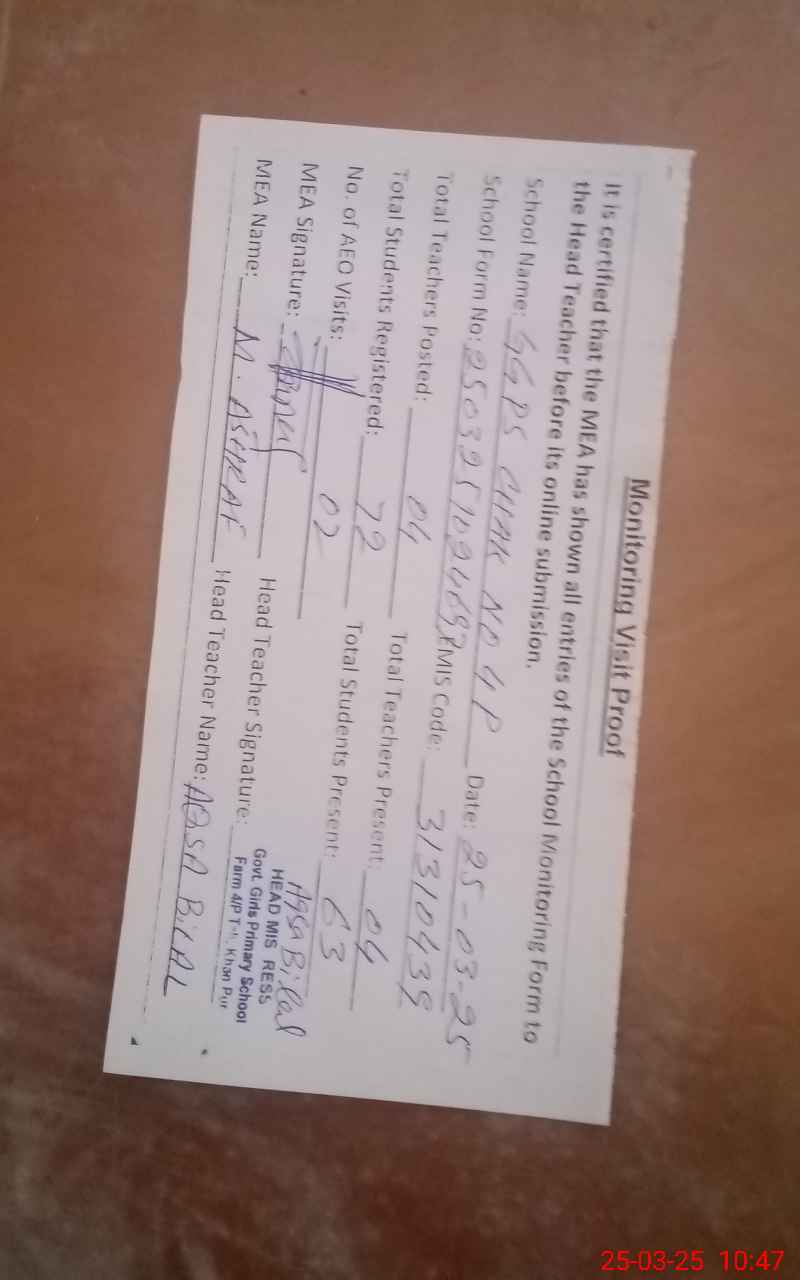 Monitoring Visit Proof
It is certified that the MEA has shown all entries of the School Monitoring Form to
the Head Teacher before its online submission.
School Name: GGPS CHAK NO 4 P Date: 25-03-25
School Form No: EMIS Code: 3131043
Total Teachers Posted: 04 Total Teachers Present: 04
Total Students Registered: 72 Total Students Present: 63
No. of AEO Visits: 02
MEA Signature: Head Teacher Signature: Aqsa Bilal
HEAD MIS RESS
Govt. Girls Primary School
Farm 4/P Khan Pur
MEA Name: M. ASHRAF Head Teacher Name: AQSA BILAL
25-03-25 10:47